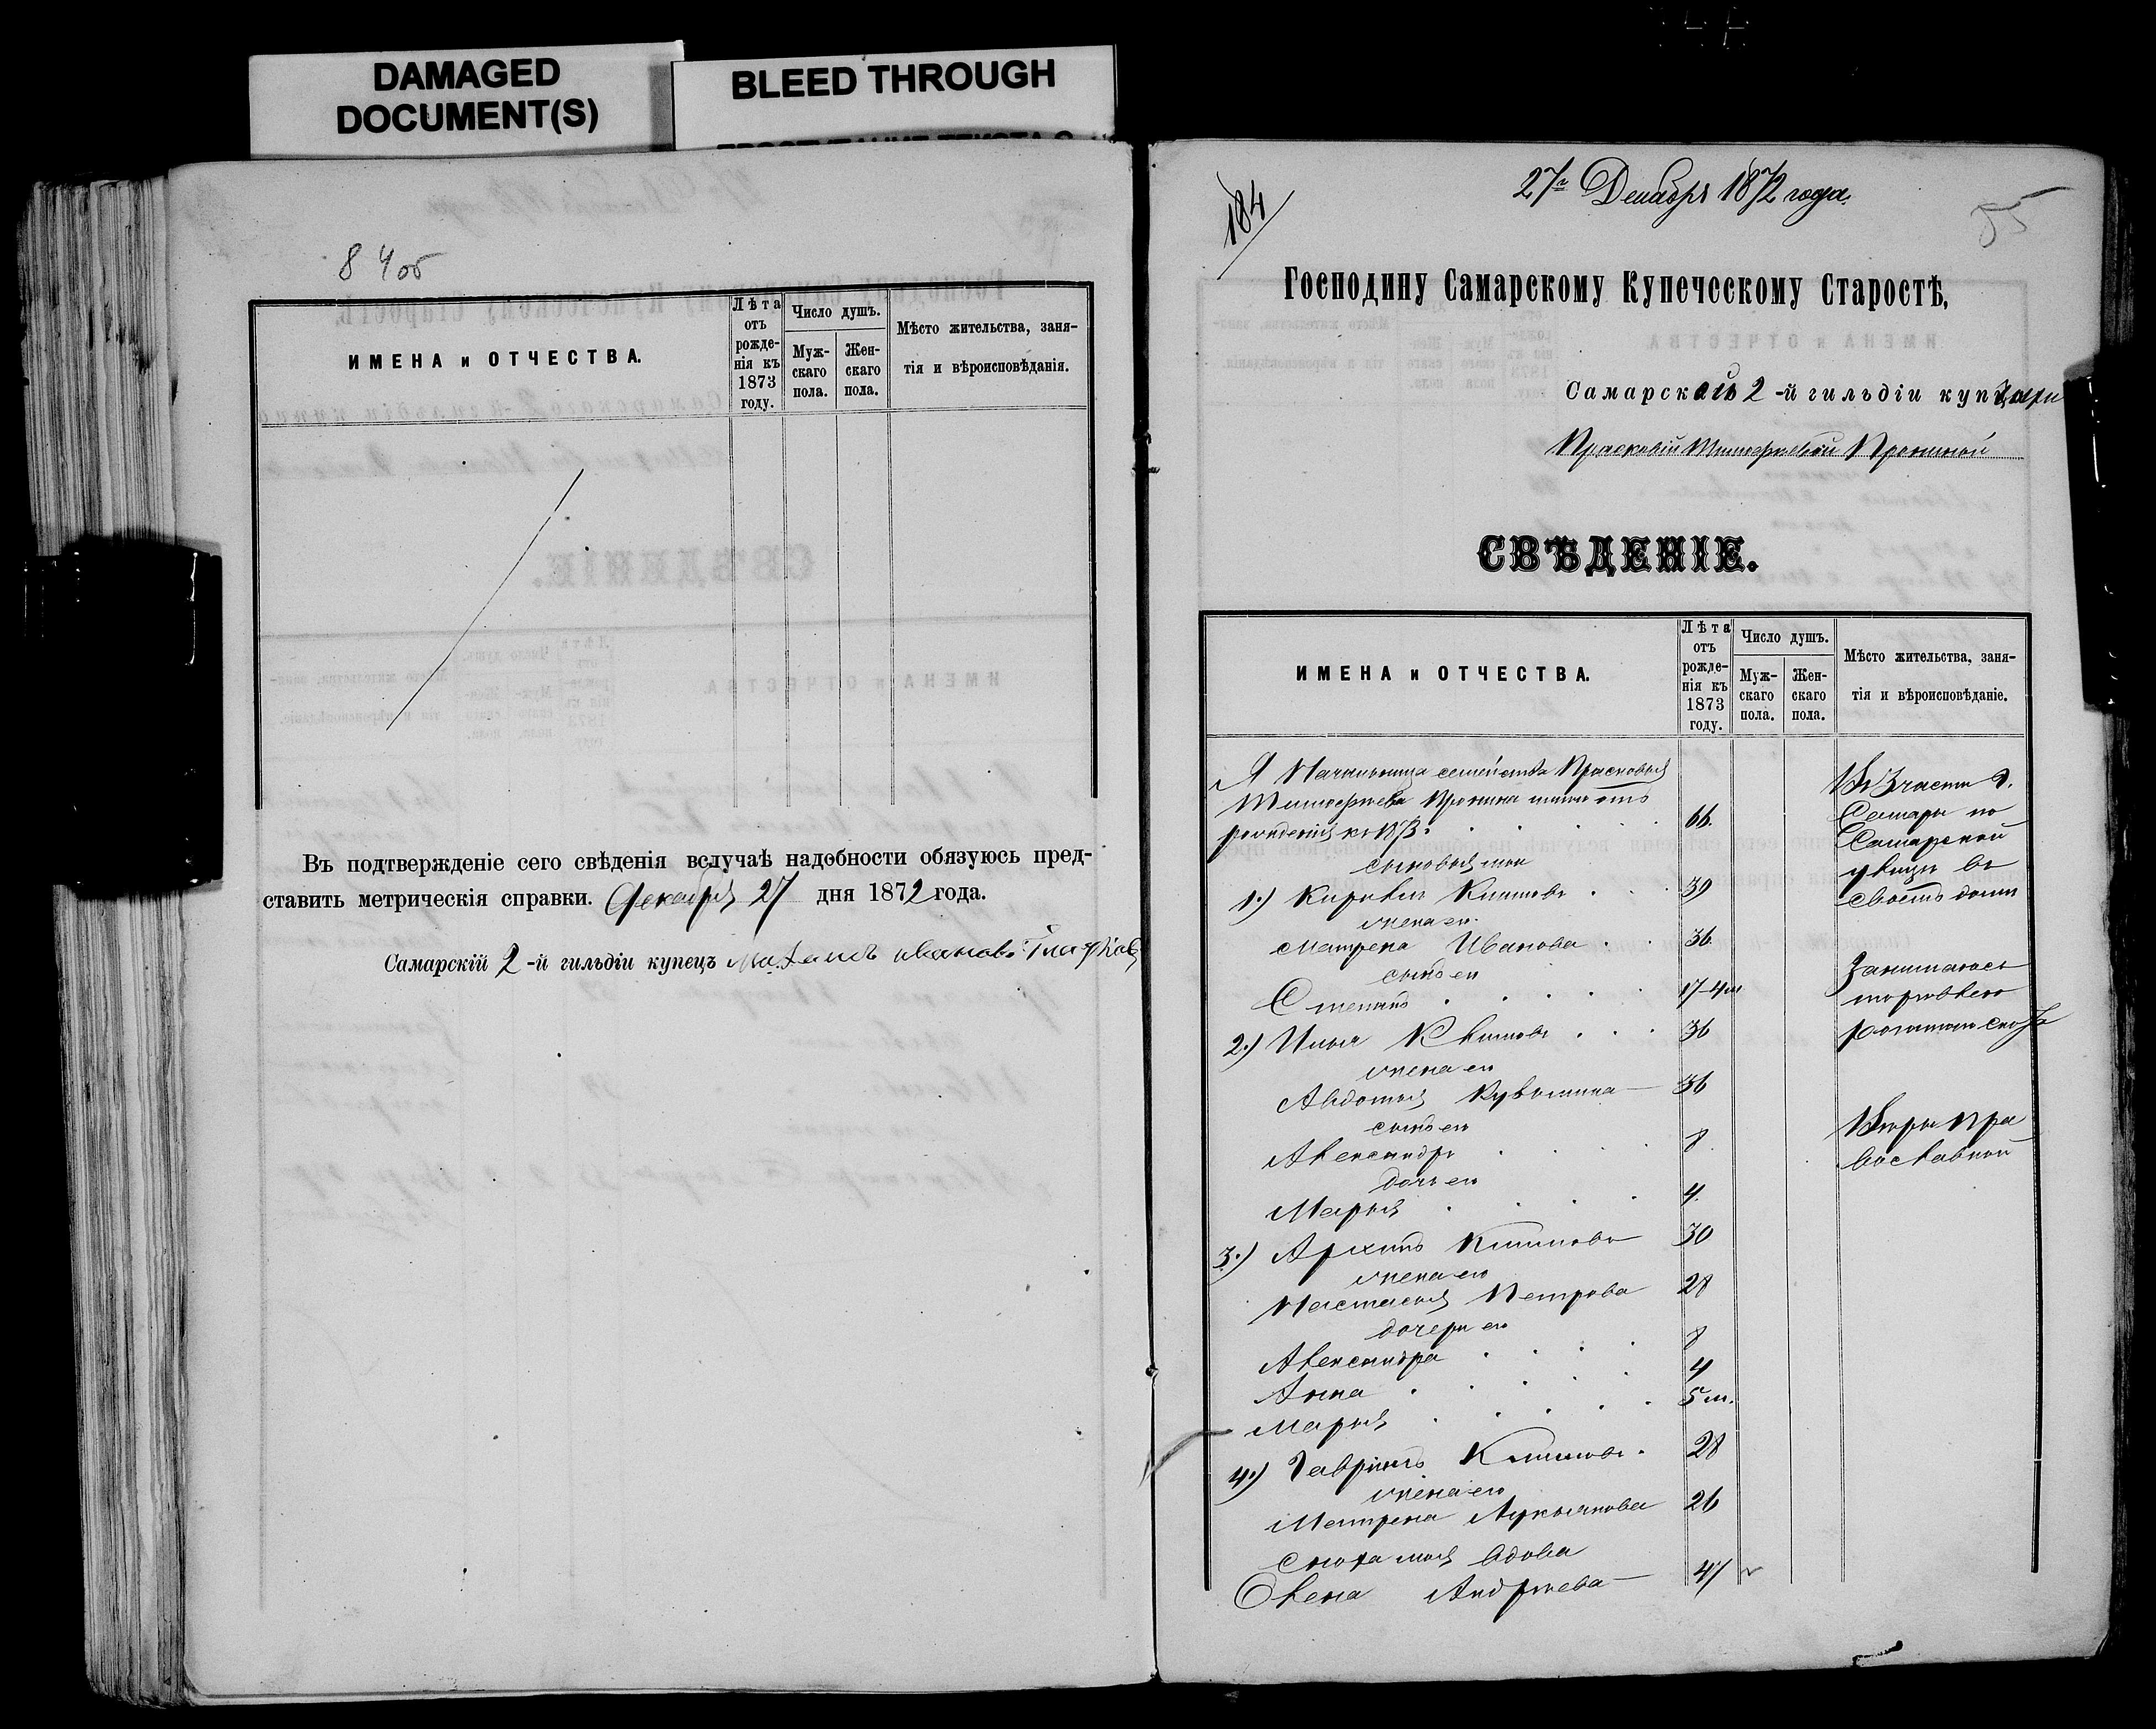 DAMAGED
DOCUMENT(S)
BLEED THROUGH
84об
ИМЕНА и ОТЧЕСТВА.
Лѣта
отъ
рожде-
нія къ
1873
году.
Число душъ.
Муж-
скаго
пола.
Жен-
скаго
пола.
Мѣсто жительства, заня-
тія и вѣроисповѣданія.
Въ подтвержденіе сего свѣденія вслучаѣ надобности обязуюсь пред-
ставить метрическія справки. Декабря 27 дня 1872 года.
Самарскій 2-й гильдіи купецъ Ивановъ
184
27го Декабря 1872 года.
85
Господину Самарскому Купеческому Старостѣ,
Самарской 2-й гильдіи купчихи
Прасковіи Тимофѣевой Прониной
СВѢДЕНІЕ.
ИМЕНА и ОТЧЕСТВА.
Лѣта
отъ
рожде-
нія къ
1873
году.
Число душъ.
Муж-
скаго
пола.
Жен-
скаго
пола.
Мѣсто жительства, заня-
тія и вѣроисповѣданіе.
Я Начальница семейства Прасковья
Тимофѣева Пронина имѣю отъ
рожденія 66.
сыновья мои
1.) Климовъ 39
жена его
Матрена Иванова 36
сынъ его
Степанъ 17-4м
2.) Илья Климовъ 36
жена его
Авдотья Кузьмина 36
сынъ его
Александръ 8.
дочь его
Марья 4.
3.) Архипъ Климовъ 30
жена его
Настасья Петрова 28
дочери его
Александра 8
Анна 4
Марья 5 м.
4.) Гаврилъ Климовъ 28
жена его
Матрена Лукьянова 26
сноха моя вдова
Елена Андреева 47
Въ 3 части г.
Самары по
Самарской
улицѣ въ
своемъ домѣ
Занимаюсь
торговлею
рогатымъ скотомъ
Вѣры Пра
вославной